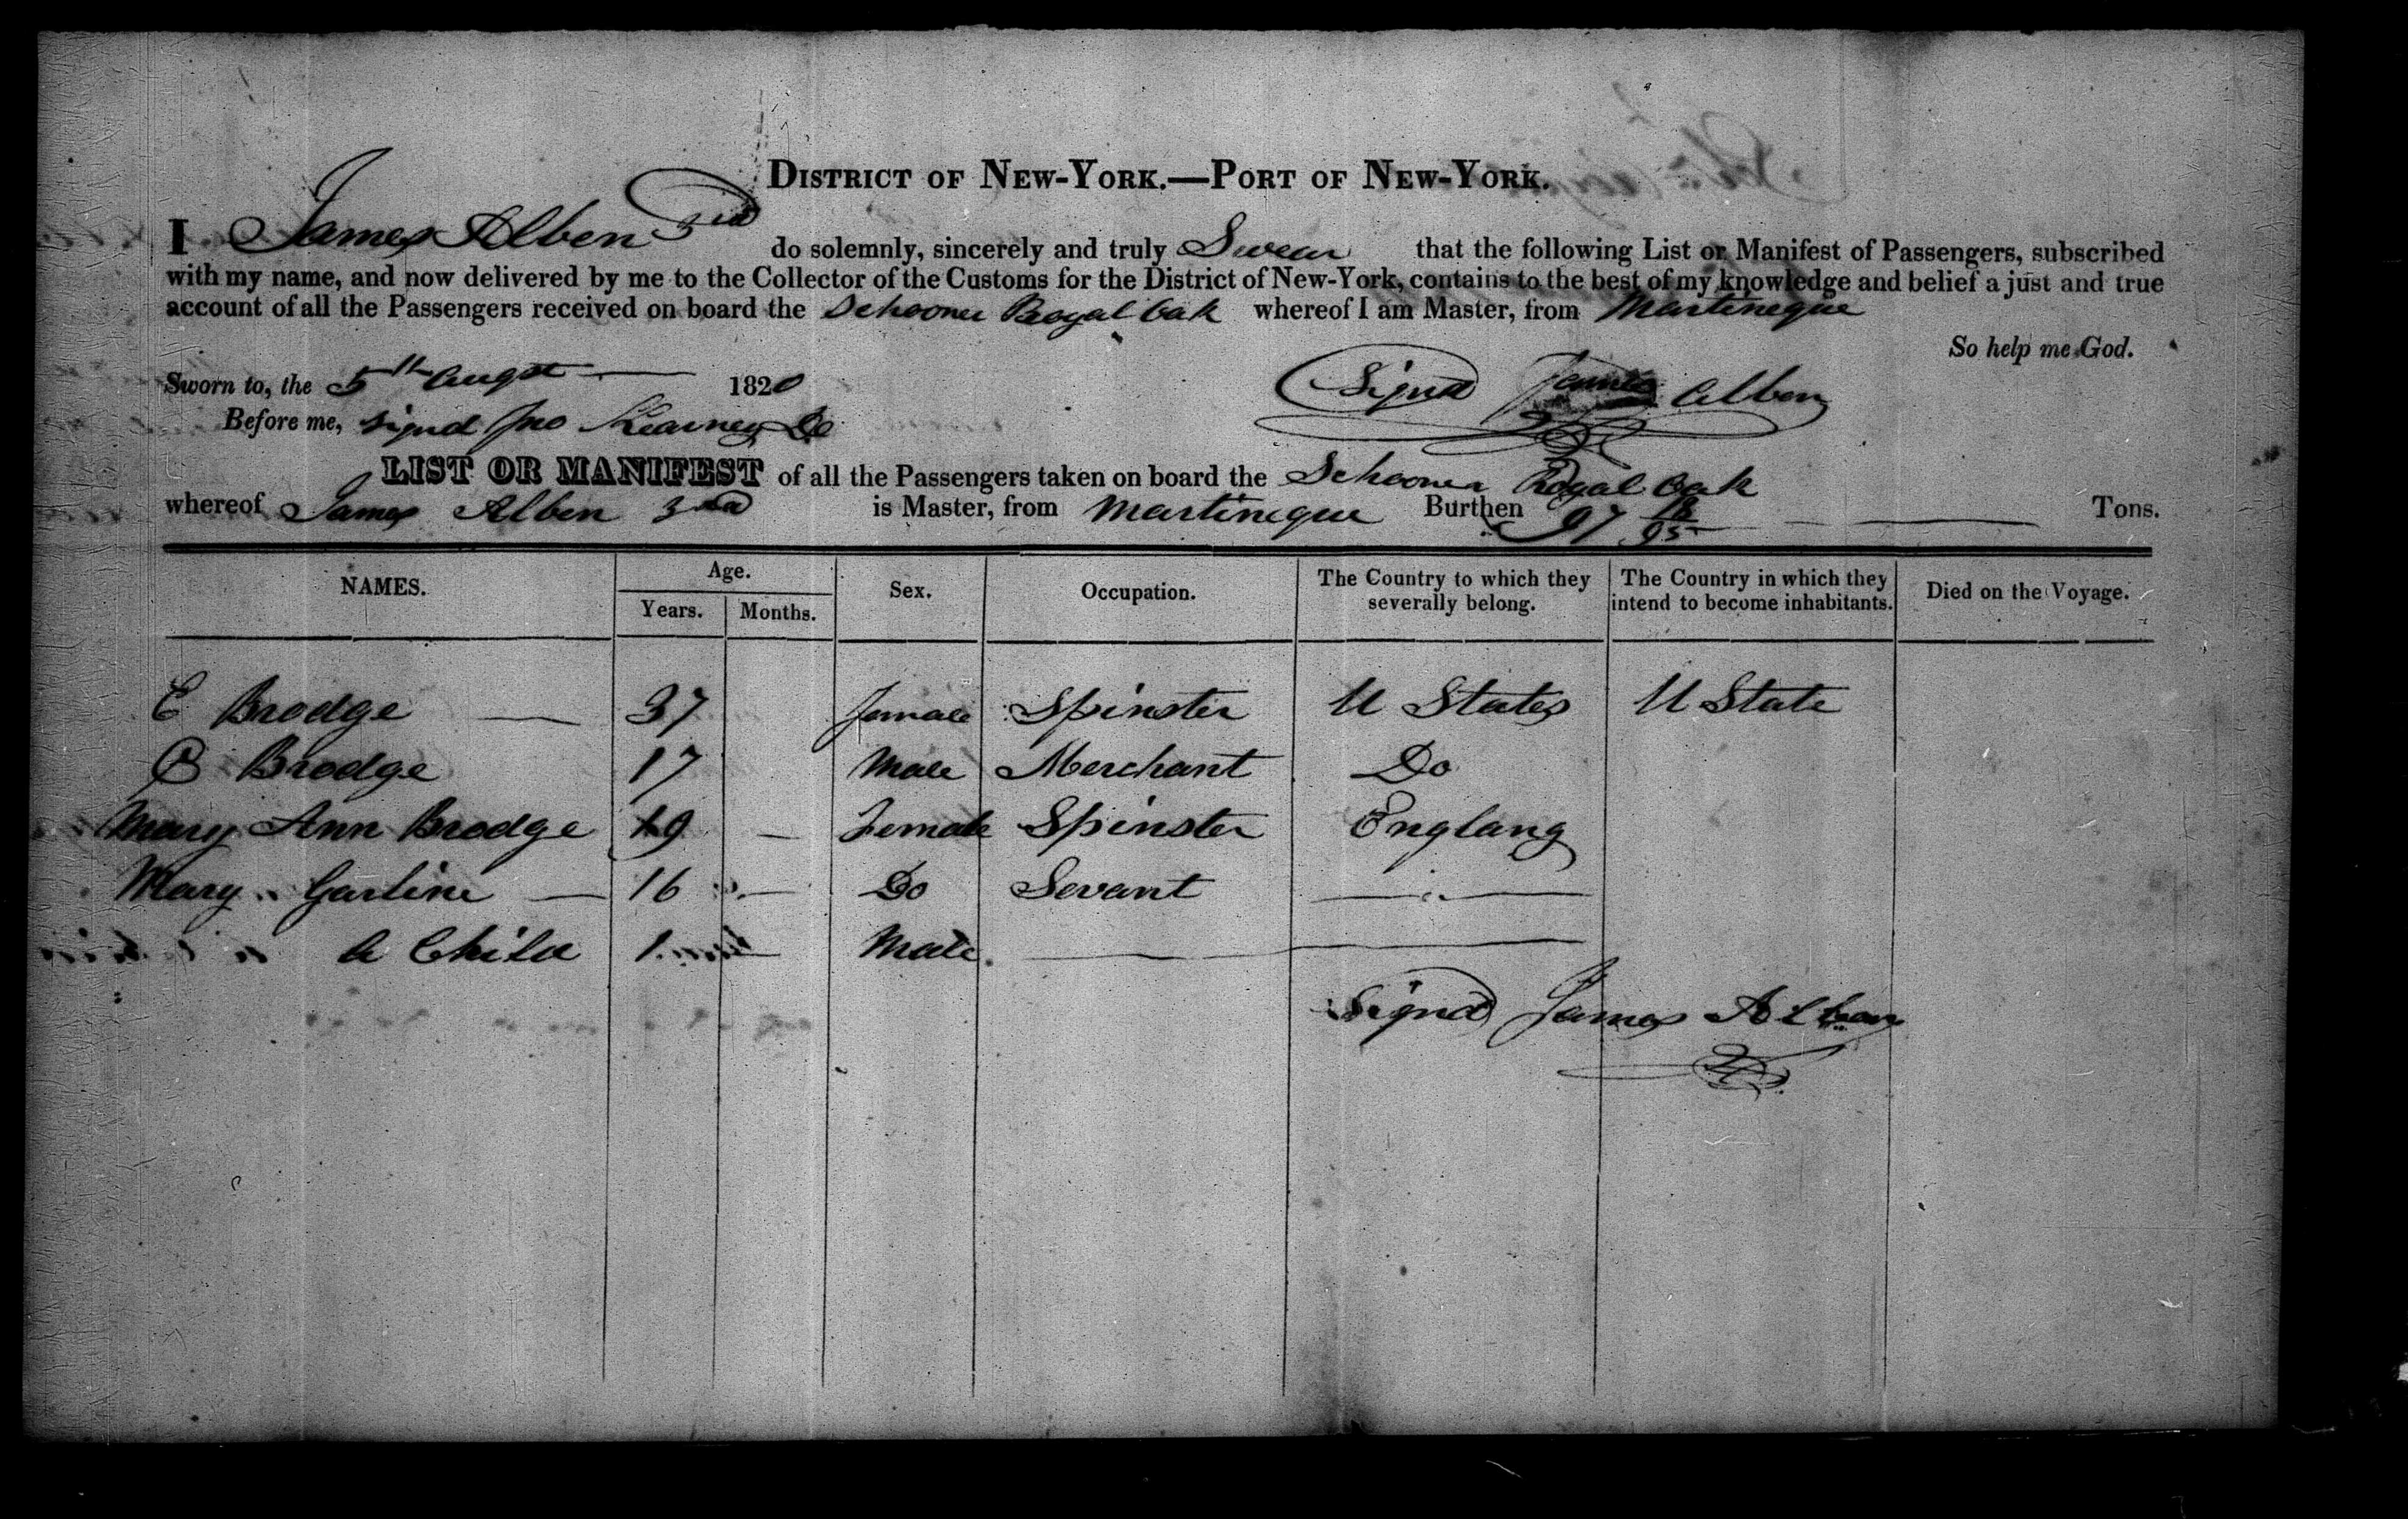 DISTRICT OF NEW-YORK.—PORT OF NEW-YORK.
I James Alben 3rd do solemnly, sincerely and truly Swear that the following List or Manifest of Passengers, subscribed
with my name, and now delivered by me to the Collector of the Customs for the District of New-York, contains to the best of my knowledge and belief a just and true
account of all the Passengers received on board the Schooner Royal Oak whereof I am Master, from Martineque
So help me God.
Sworn to, the 5th Augst 1820 Signd James Alben
Before me, signd Jno Kearney
LIST OR MANIFEST of all the Passengers taken on board the Schooner Royal Oak
whereof James Alben 3rd is Master, from Martineque Burthen 97 18/95 Tons.
NAMES. Age. Sex. Occupation. The Country to which they severally belong. The Country in which they intend to become inhabitants. Died on the Voyage.
Years. Months.
E Brodge 37 Female Spinster U States U State
B Brodge 17 Male Merchant Do
Mary Ann Brodge 19 Female Spinster Englang
Mary Garline 16 Do Servant
A Child 1 Male
Signd James Alben